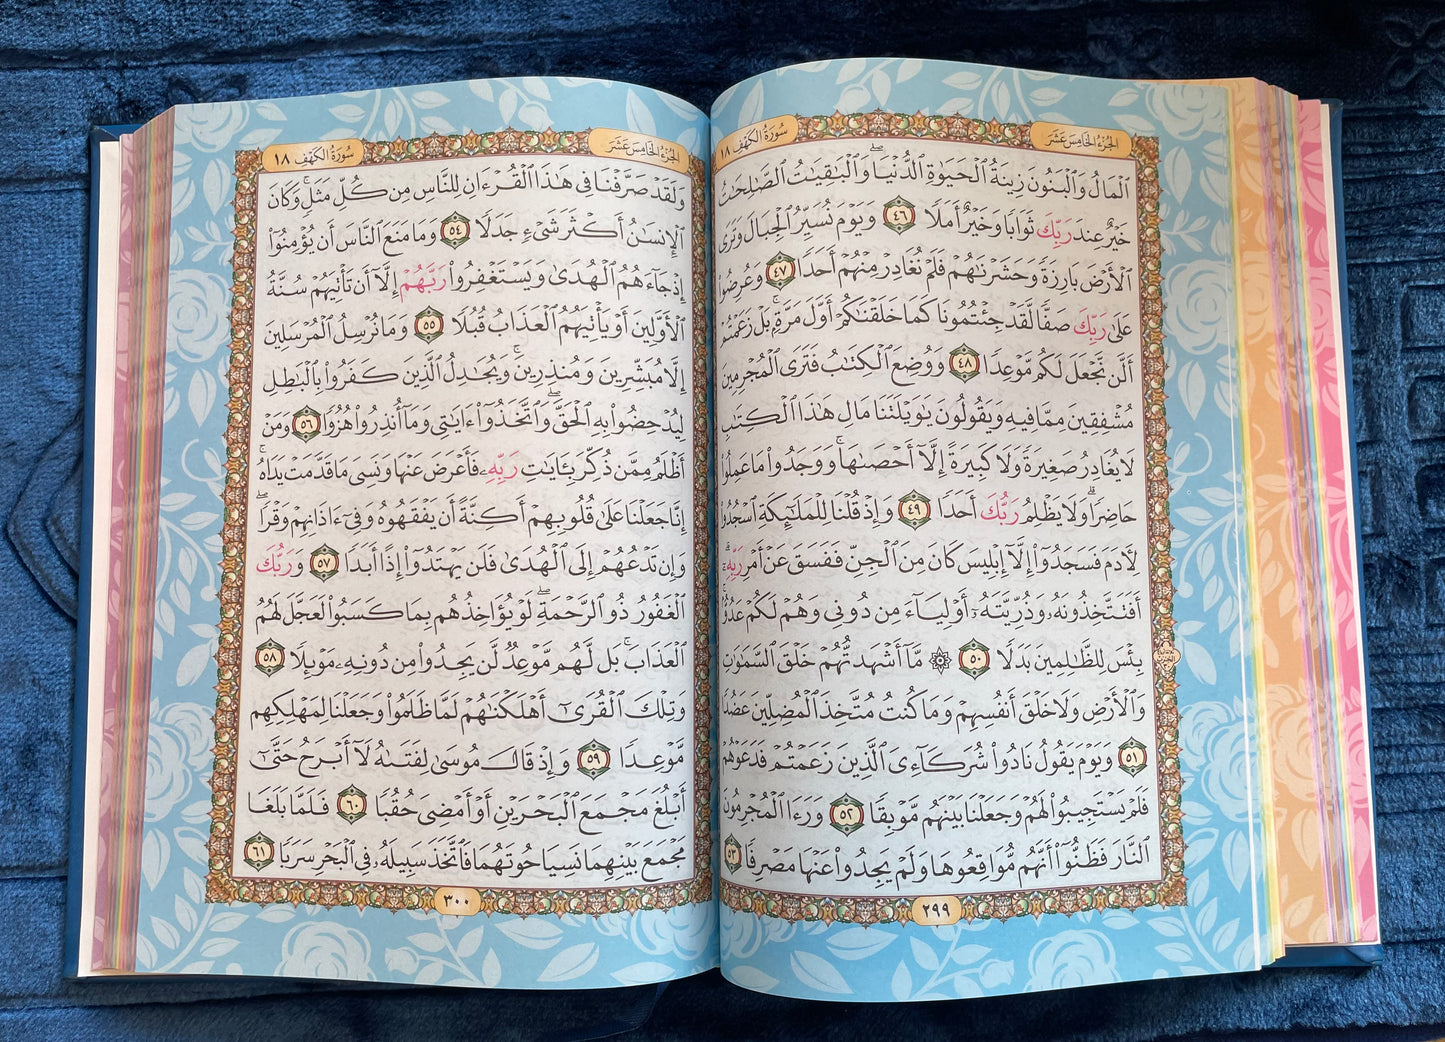 سُورَةُ الكَهْفِ ١٨
الجُزْءُ الخَامِسَ عَشَرَ
ٱلْمَالُ وَٱلْبَنُونَ زِينَةُ ٱلْحَيَوٰةِ ٱلدُّنْيَا ۖ وَٱلْبَٰقِيَٰتُ ٱلصَّٰلِحَٰتُ
خَيْرٌ عِندَ رَبِّكَ ثَوَابًا وَخَيْرٌ أَمَلًا ٤٦ وَيَوْمَ نُسَيِّرُ ٱلْجِبَالَ وَتَرَى
ٱلْأَرْضَ بَارِزَةً وَحَشَرْنَٰهُمْ فَلَمْ نُغَادِرْ مِنْهُمْ أَحَدًا ٤٧ وَعُرِضُوا۟
عَلَىٰ رَبِّكَ صَفًّا لَّقَدْ جِئْتُمُونَا كَمَا خَلَقْنَٰكُمْ أَوَّلَ مَرَّةٍۭ ۚ بَلْ زَعَمْتُمْ
أَلَّن نَّجْعَلَ لَكُم مَّوْعِدًا ٤٨ وَوُضِعَ ٱلْكِتَٰبُ فَتَرَى ٱلْمُجْرِمِينَ
مُشْفِقِينَ مِمَّا فِيهِ وَيَقُولُونَ يَٰوَيْلَتَنَا مَالِ هَٰذَا ٱلْكِتَٰبِ
لَا يُغَادِرُ صَغِيرَةً وَلَا كَبِيرَةً إِلَّآ أَحْصَىٰهَا ۚ وَوَجَدُوا۟ مَا عَمِلُوا۟
حَاضِرًا ۗ وَلَا يَظْلِمُ رَبُّكَ أَحَدًا ٤٩ وَإِذْ قُلْنَا لِلْمَلَٰٓئِكَةِ ٱسْجُدُوا۟
لِءَادَمَ فَسَجَدُوٓا۟ إِلَّآ إِبْلِيسَ كَانَ مِنَ ٱلْجِنِّ فَفَسَقَ عَنْ أَمْرِ رَبِّهِۦٓ ۗ
أَفَتَتَّخِذُونَهُۥ وَذُرِّيَّتَهُۥٓ أَوْلِيَآءَ مِن دُونِى وَهُمْ لَكُمْ عَدُوٌّۢ ۚ
بِئْسَ لِلظَّٰلِمِينَ بَدَلًا ٥٠ ۞ مَّآ أَشْهَدتُّهُمْ خَلْقَ ٱلسَّمَٰوَٰتِ
وَٱلْأَرْضِ وَلَا خَلْقَ أَنفُسِهِمْ وَمَا كُنتُ مُتَّخِذَ ٱلْمُضِلِّينَ عَضُدًا
٥١ وَيَوْمَ يَقُولُ نَادُوا۟ شُرَكَآءِىَ ٱلَّذِينَ زَعَمْتُمْ فَدَعَوْهُمْ
فَلَمْ يَسْتَجِيبُوا۟ لَهُمْ وَجَعَلْنَا بَيْنَهُم مَّوْبِقًا ٥٢ وَرَءَا ٱلْمُجْرِمُونَ
ٱلنَّارَ فَظَنُّوٓا۟ أَنَّهُم مُّوَاقِعُوهَا وَلَمْ يَجِدُوا۟ عَنْهَا مَصْرِفًا ٥٣
٢٩٩
الجُزْءُ الخَامِسَ عَشَرَ
سُورَةُ الكَهْفِ ١٨
وَلَقَدْ صَرَّفْنَا فِى هَٰذَا ٱلْقُرْءَانِ لِلنَّاسِ مِن كُلِّ مَثَلٍ ۚ وَكَانَ
ٱلْإِنسَٰنُ أَكْثَرَ شَىْءٍ جَدَلًا ٥٤ وَمَا مَنَعَ ٱلنَّاسَ أَن يُؤْمِنُوٓا۟
إِذْ جَآءَهُمُ ٱلْهُدَىٰ وَيَسْتَغْفِرُوا۟ رَبَّهُمْ إِلَّآ أَن تَأْتِيَهُمْ سُنَّةُ
ٱلْأَوَّلِينَ أَوْ يَأْتِيَهُمُ ٱلْعَذَابُ قُبُلًا ٥٥ وَمَا نُرْسِلُ ٱلْمُرْسَلِينَ
إِلَّا مُبَشِّرِينَ وَمُنذِرِينَ ۚ وَيُجَٰدِلُ ٱلَّذِينَ كَفَرُوا۟ بِٱلْبَٰطِلِ
لِيُدْحِضُوا۟ بِهِ ٱلْحَقَّ ۖ وَٱتَّخَذُوٓا۟ ءَايَٰتِى وَمَآ أُنذِرُوا۟ هُزُوًا ٥٦ وَمَنْ
أَظْلَمُ مِمَّن ذُكِّرَ بِـَٔايَٰتِ رَبِّهِۦ فَأَعْرَضَ عَنْهَا وَنَسِىَ مَا قَدَّمَتْ يَدَاهُ ۚ
إِنَّا جَعَلْنَا عَلَىٰ قُلُوبِهِمْ أَكِنَّةً أَن يَفْقَهُوهُ وَفِىٓ ءَاذَانِهِمْ وَقْرًا ۖ
وَإِن تَدْعُهُمْ إِلَى ٱلْهُدَىٰ فَلَن يَهْتَدُوٓا۟ إِذًا أَبَدًا ٥٧ وَرَبُّكَ
ٱلْغَفُورُ ذُو ٱلرَّحْمَةِ ۖ لَوْ يُؤَاخِذُهُم بِمَا كَسَبُوا۟ لَعَجَّلَ لَهُمُ
ٱلْعَذَابَ ۚ بَل لَّهُم مَّوْعِدٌ لَّن يَجِدُوا۟ مِن دُونِهِۦ مَوْئِلًا ٥٨
وَتِلْكَ ٱلْقُرَىٰٓ أَهْلَكْنَٰهُمْ لَمَّا ظَلَمُوا۟ وَجَعَلْنَا لِمَهْلِكِهِم
مَّوْعِدًا ٥٩ وَإِذْ قَالَ مُوسَىٰ لِفَتَىٰهُ لَآ أَبْرَحُ حَتَّىٰٓ
أَبْلُغَ مَجْمَعَ ٱلْبَحْرَيْنِ أَوْ أَمْضِىَ حُقُبًا ٦٠ فَلَمَّا بَلَغَا
مَجْمَعَ بَيْنِهِمَا نَسِيَا حُوتَهُمَا فَٱتَّخَذَ سَبِيلَهُۥ فِى ٱلْبَحْرِ سَرَبًا ٦١
٣٠٠